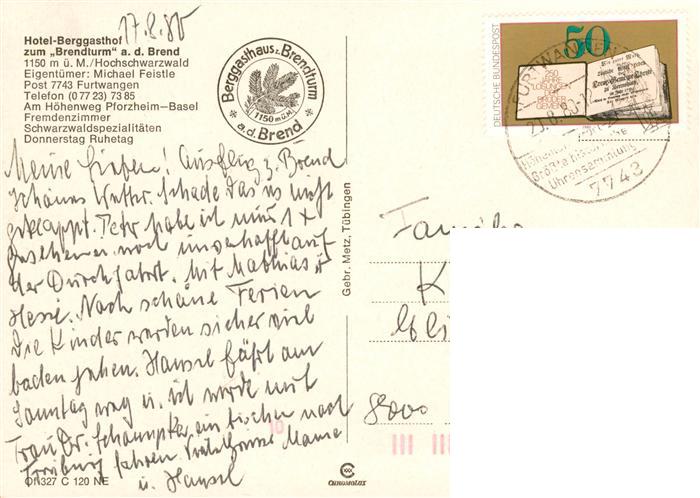 17.8.80
Hotel-Berggasthof
zum „Brendturm“ a. d. Brend
1150 m ü. M./Hochschwarzwald
Eigentümer: Michael Feistle
Post 7743 Furtwangen
Telefon (0 77 23) 73 85
Am Höhenweg Pforzheim–Basel
Fremdenzimmer
Schwarzwaldspezialitäten
Donnerstag Ruhetag
Berggasthaus z. Brendturm
1150 m ü. M.
a. d. Brend
DEUTSCHE BUNDESPOST
50
250
LOSUNGEN
DER
BRÜDER
GEMEINE
FURTWANGEN
Größte
Uhrensammlung
7743
Meine Lieben! Ausflug z. Brend
schönes Wetter. Schade das es nicht
geklappt. Peter habe ich nur 1 x
gesehen u. noch unverhofft auf
der Durchfahrt. Mit Mathias u.
Noch schöne Ferien
Die Kinder werden sicher viel
baden gehen. Hansel fährt am
Sonntag weg u. ich werde mit
Frau Dr. ein bischen nach
Freiburg fahren. Mama
u. Hansel
Gebr. Metz, Tübingen
Familie
K
8000
10
327 C 120 NE
CHROMOLUX